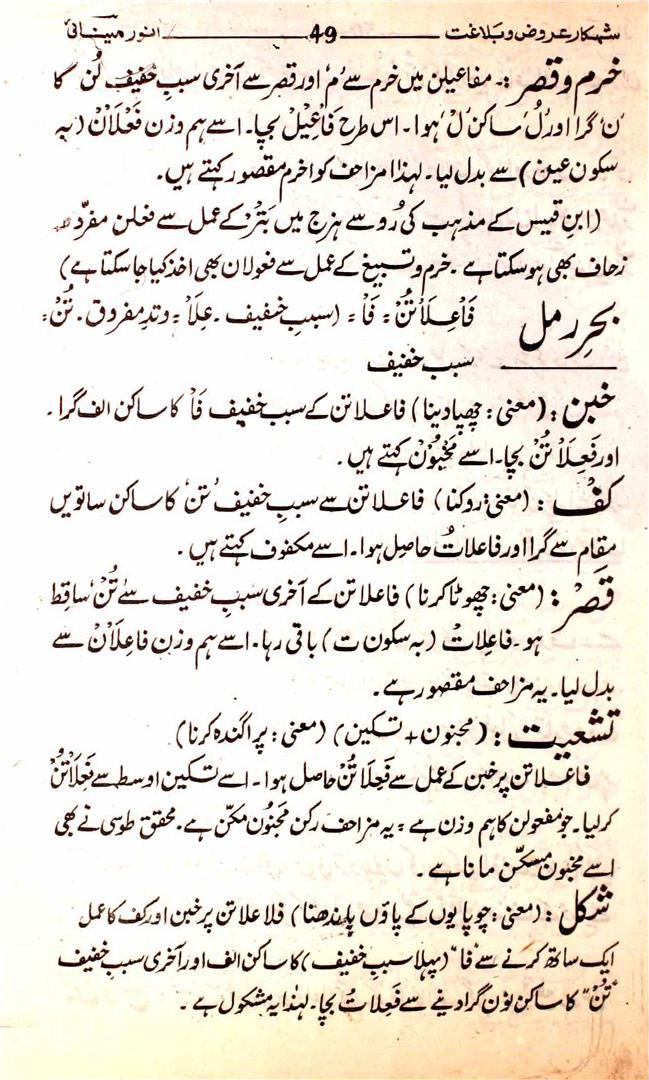 شہکار عروض و بلاغت ــــــ 49 ــــــ انور مینائی
خرم و قصر :۔ مفاعیلن میں خرم سے 'م' اور قصر سے آخری سببِ خفیف لُن کا
'ن' گرا اور 'لُ' ساکن 'لْ' ہوا۔ اس طرح فَاعِیْلْ بچا۔ اسے ہم وزن فَعْلَانْ (بہ
سکون عین) سے بدل لیا۔ لہٰذا مزاحف کو اخرم مقصور کہتے ہیں۔
(ابنِ قیس کے مذہب کی رُو سے ہزج میں بَتَرْ کے عمل سے فعلن مفرّد
زحاف بھی ہو سکتا ہے۔ خرم و تسبیغ کے عمل سے فعولان بھی اخذ کیا جا سکتا ہے)
بحرِ رمل فَاْعِلَاْتُنْ = فَاْ = (سببِ خفیف ۔ عِلَاْ = وتدِ مفروق ۔ تُنْ =
سبب خفیف
خبن : (معنی : چھپا دینا) فاعلاتن کے سبب خفیف فَاْ کا ساکن الف گرا۔
اور فَعِلَاْتُنْ بچا۔ اسے مَخْبُوْنْ کہتے ہیں۔
کفْ : (معنی : روکنا) فاعلاتن سے سببِ خفیف 'تن' کا ساکن ساتویں
مقام سے گرا اور فاعلاتُ حاصل ہوا۔ اسے مکفوف کہتے ہیں۔
قصْر : (معنی : چھوٹا کرنا) فاعلاتن کے آخری سببِ خفیف سے 'تُنْ' ساقط
ہو۔ فاعِلاتْ (بہ سکون ت) باقی رہا۔ اسے ہم وزن فاعِلَانْ سے
بدل لیا۔ یہ مزاحف مقصور ہے۔
تشعیت : (مجنون + تسکین) (معنی : پراگندہ کرنا)
فاعلاتن پر خبن کے عمل سے فَعِلَاتُنْ حاصل ہوا۔ اسے تسکین اوسط سے فَعْلَاتُنْ
کر لیا۔ جو مفعولن کا ہم وزن ہے = یہ مزاحف رکن مَجنُون مکّن ہے۔ محقق طوسی نے بھی
اسے مخبون مسکّن مانا ہے۔
شکل : (معنی : چوپایوں کے پاؤں باندھنا) فلاعلاتن پر خبن اور کف کا عمل
ایک ساتھ کرنے سے "فا" (پہلا سببِ خفیف) کا ساکن الف اور آخری سببِ خفیف
"تُنْ" کا ساکن نون گرا دینے سے فَعِلَاتُ بچا۔ لہٰذا یہ مشکول ہے۔